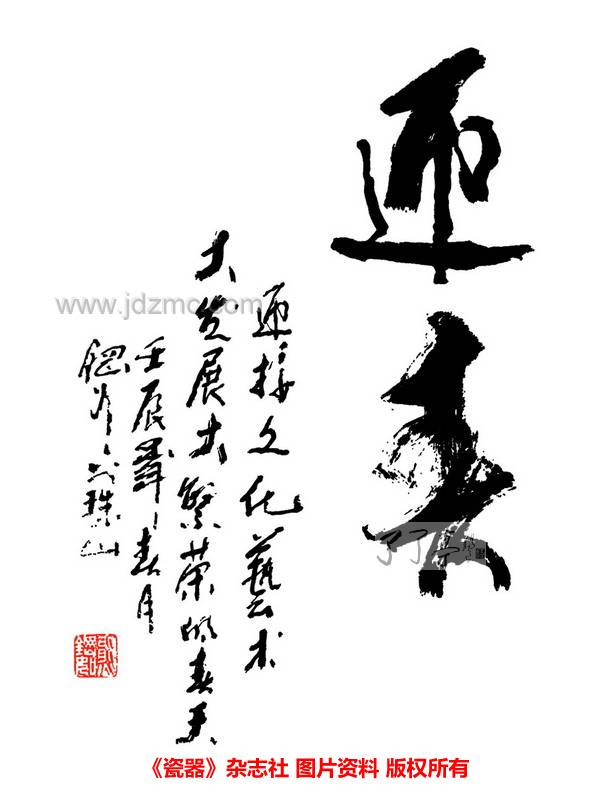 迎春
迎接文化藝术
大发展大繁荣的春天
壬辰春月
珠山
www.jdzmc.com
《瓷器》杂志社 图片资料 版权所有